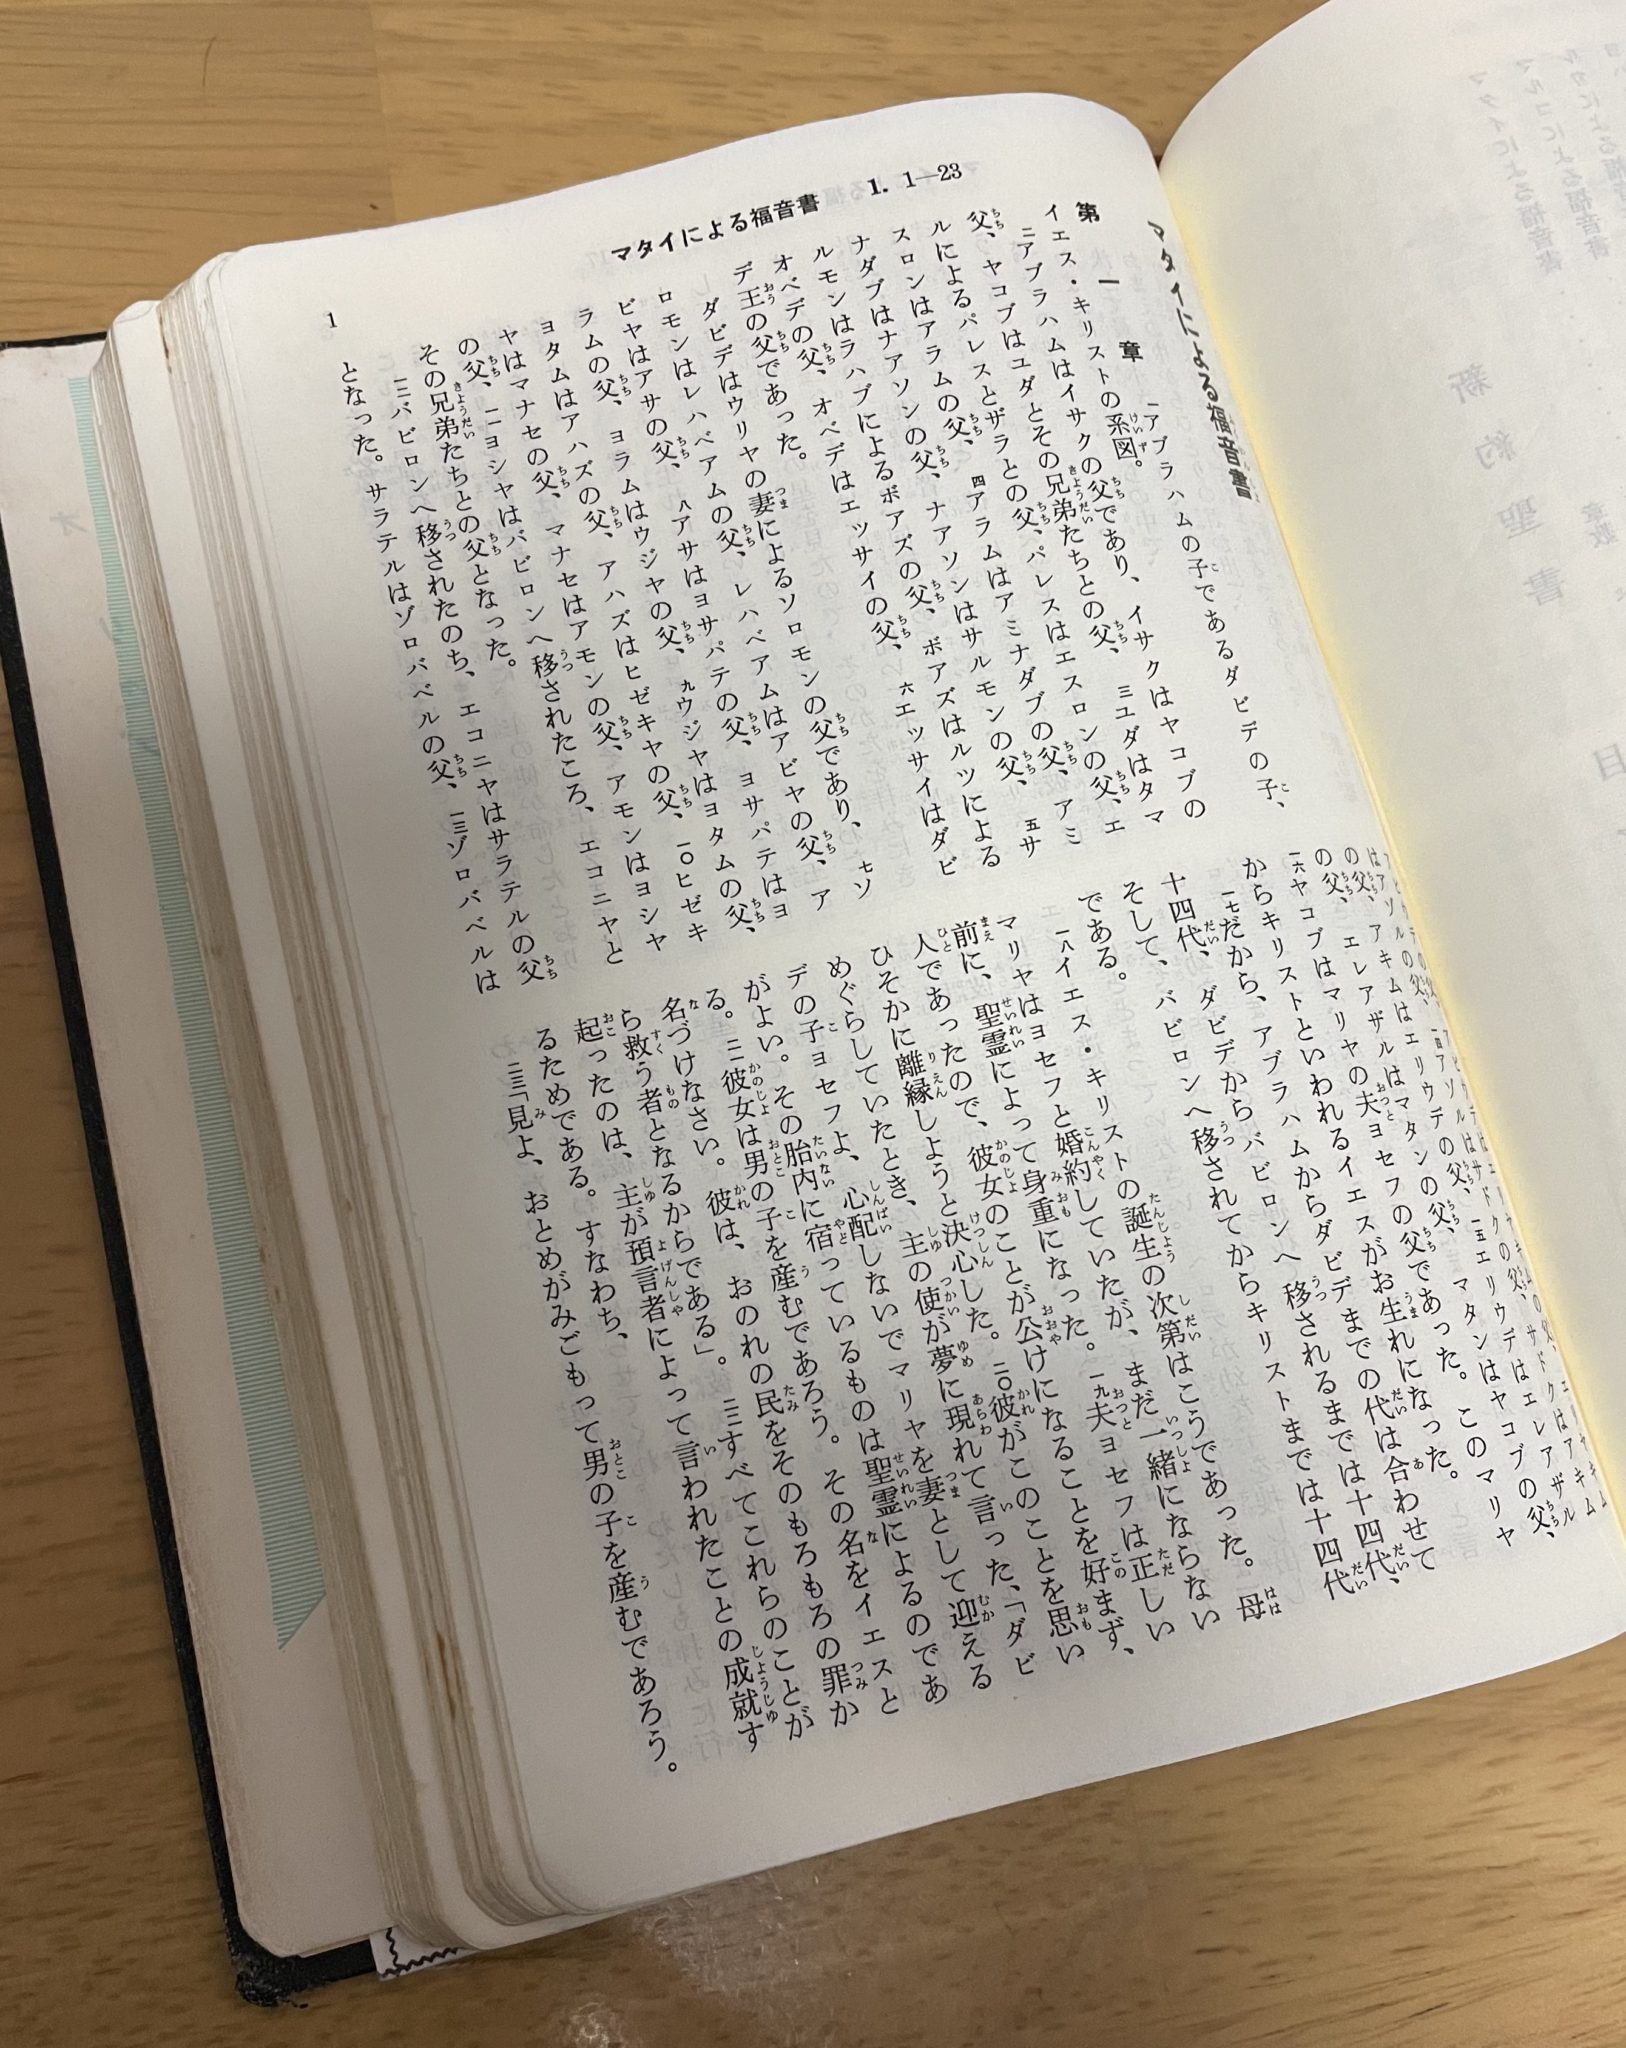 マタイによる福音書 1. 1—23
マタイによる福音書
第一章 一アブラハムの子であるダビデの子、
イエス・キリストの系図。
二アブラハムはイサクの父であり、イサクはヤコブの
父、ヤコブはユダとその兄弟たちとの父、三ユダはタマ
ルによるパレスとザラとの父、パレスはエスロンの父、エ
スロンはアラムの父、四アラムはアミナダブの父、アミ
ナダブはナアソンの父、ナアソンはサルモンの父、五サ
ルモンはラハブによるボアズの父、ボアズはルツによる
オベデの父、オベデはエッサイの父、六エッサイはダビ
デ王の父であった。
ダビデはウリヤの妻によるソロモンの父であり、七ソ
ロモンはレハベアムの父、レハベアムはアビヤの父、ア
ビヤはアサの父、八アサはヨサパテの父、ヨサパテはヨ
ラムの父、ヨラムはウジヤの父、九ウジヤはヨタムの父、
ヨタムはアハズの父、アハズはヒゼキヤの父、一〇ヒゼキ
ヤはマナセの父、マナセはアモンの父、アモンはヨシヤ
の父、一一ヨシヤはバビロンへ移されたころ、エコニヤと
その兄弟たちとの父となった。
一二バビロンへ移されたのち、エコニヤはサラテルの父
となった。サラテルはゾロバベルの父、一三ゾロバベルは
アビウデの父、アビウデはエリヤキムの父、エリヤキム
はアゾルの父、一四アゾルはサドクの父、サドクはアキム
の父、アキムはエリウデの父、一五エリウデはエレアザル
の父、エレアザルはマタンの父、マタンはヤコブの父、
一六ヤコブはマリヤの夫ヨセフの父であった。このマリヤ
からキリストといわれるイエスがお生れになった。
一七だから、アブラハムからダビデまでの代は合わせて
十四代、ダビデからバビロンへ移されるまでは十四代、
そして、バビロンへ移されてからキリストまでは十四代
である。
一八イエス・キリストの誕生の次第はこうであった。母
マリヤはヨセフと婚約していたが、まだ一緒にならない
前に、聖霊によって身重になった。一九夫ヨセフは正しい
人であったので、彼女のことが公けになることを好まず、
ひそかに離縁しようと決心した。二〇彼がこのことを思い
めぐらしていたとき、主の使が夢に現れて言った、「ダビ
デの子ヨセフよ、心配しないでマリヤを妻として迎える
がよい。その胎内に宿っているものは聖霊によるのであ
る。二一彼女は男の子を産むであろう。その名をイエスと
名づけなさい。彼は、おのれの民をそのもろもろの罪か
ら救う者となるからである」。二二すべてこれらのことが
起ったのは、主が預言者によって言われたことの成就す
るためである。すなわち、
二三「見よ、おとめがみごもって男の子を産むであろう。
1